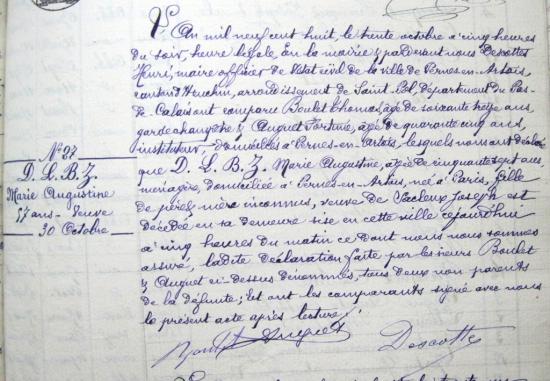 L'An mil neuf cent huit, le trente octobre à cinq heures
du soir, heure légale, En la mairie & par devant nous Descottes
Henri, maire officier de l'état civil de la ville de Pernes-en-Artois
canton d'Heuchin, arrondissement de Saint-Pol, département du Pas-
de-Calais ont comparu Boulet Thomas, âgé de soixante treize ans
garde champêtre & Auguet Fortuné, âgé de quarante cinq ans,
instituteur, domiciliés à Pernes-en-Artois, lesquels nous ont déclaré
que D. L. B. Z. Marie Augustine, âgée de cinquante sept ans,
ménagère, domiciliée à Pernes-en-Artois, née à Paris, fille
de père & mère inconnus, veuve de Vacleux Joseph est
décédée en sa demeure sise en cette ville cejourd'hui
à cinq heures du matin ce dont nous nous sommes
assuré, ladite déclaration faite par les sieurs Boulet
& Auguet ci-dessus dénommés, tous deux non parents
de la défunte; Et ont les comparants signé avec nous
le présent acte après lecture.
Boulet Auguet Descottes
N° 27
D. L. B. Z.
Marie Augustine
57 ans - Veuve
30 Octobre